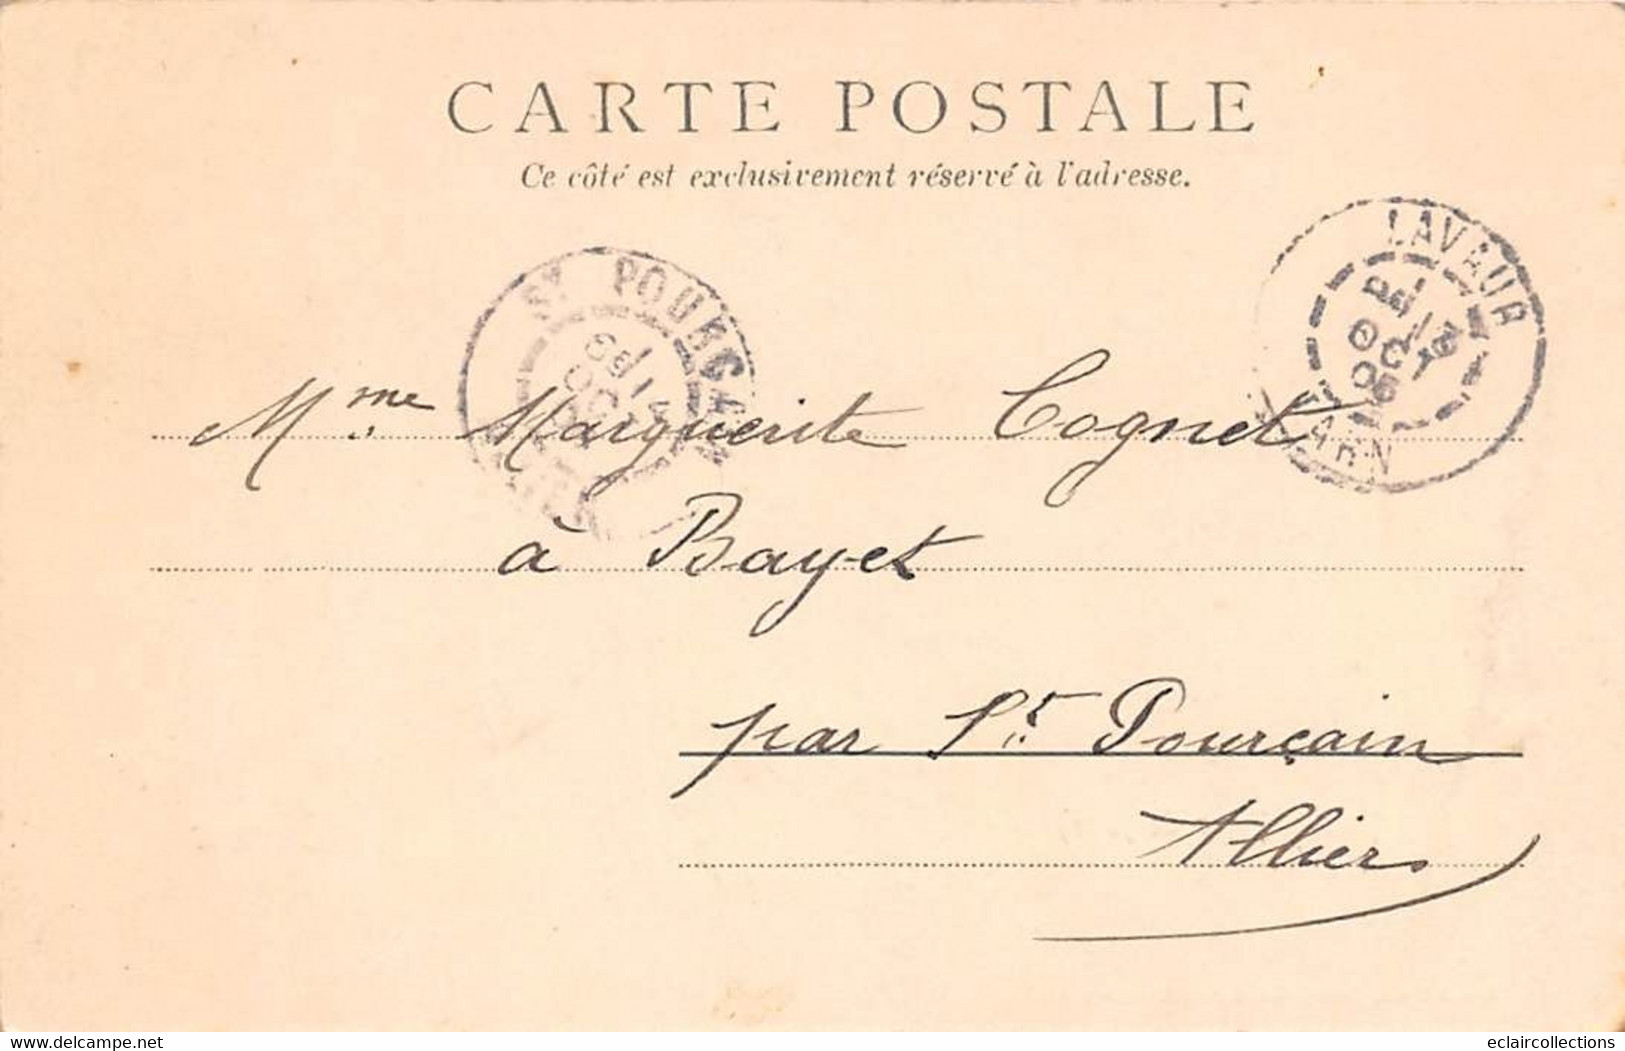 CARTE POSTALE
Ce côté est exclusivement réservé à l'adresse.
LAVAUR
TARN
St POURÇAIN
ALLIER
Mme Marguerite Cognet
à Bayet
par St Pourçain
Allier
www.delcampe.net
eclaircollections